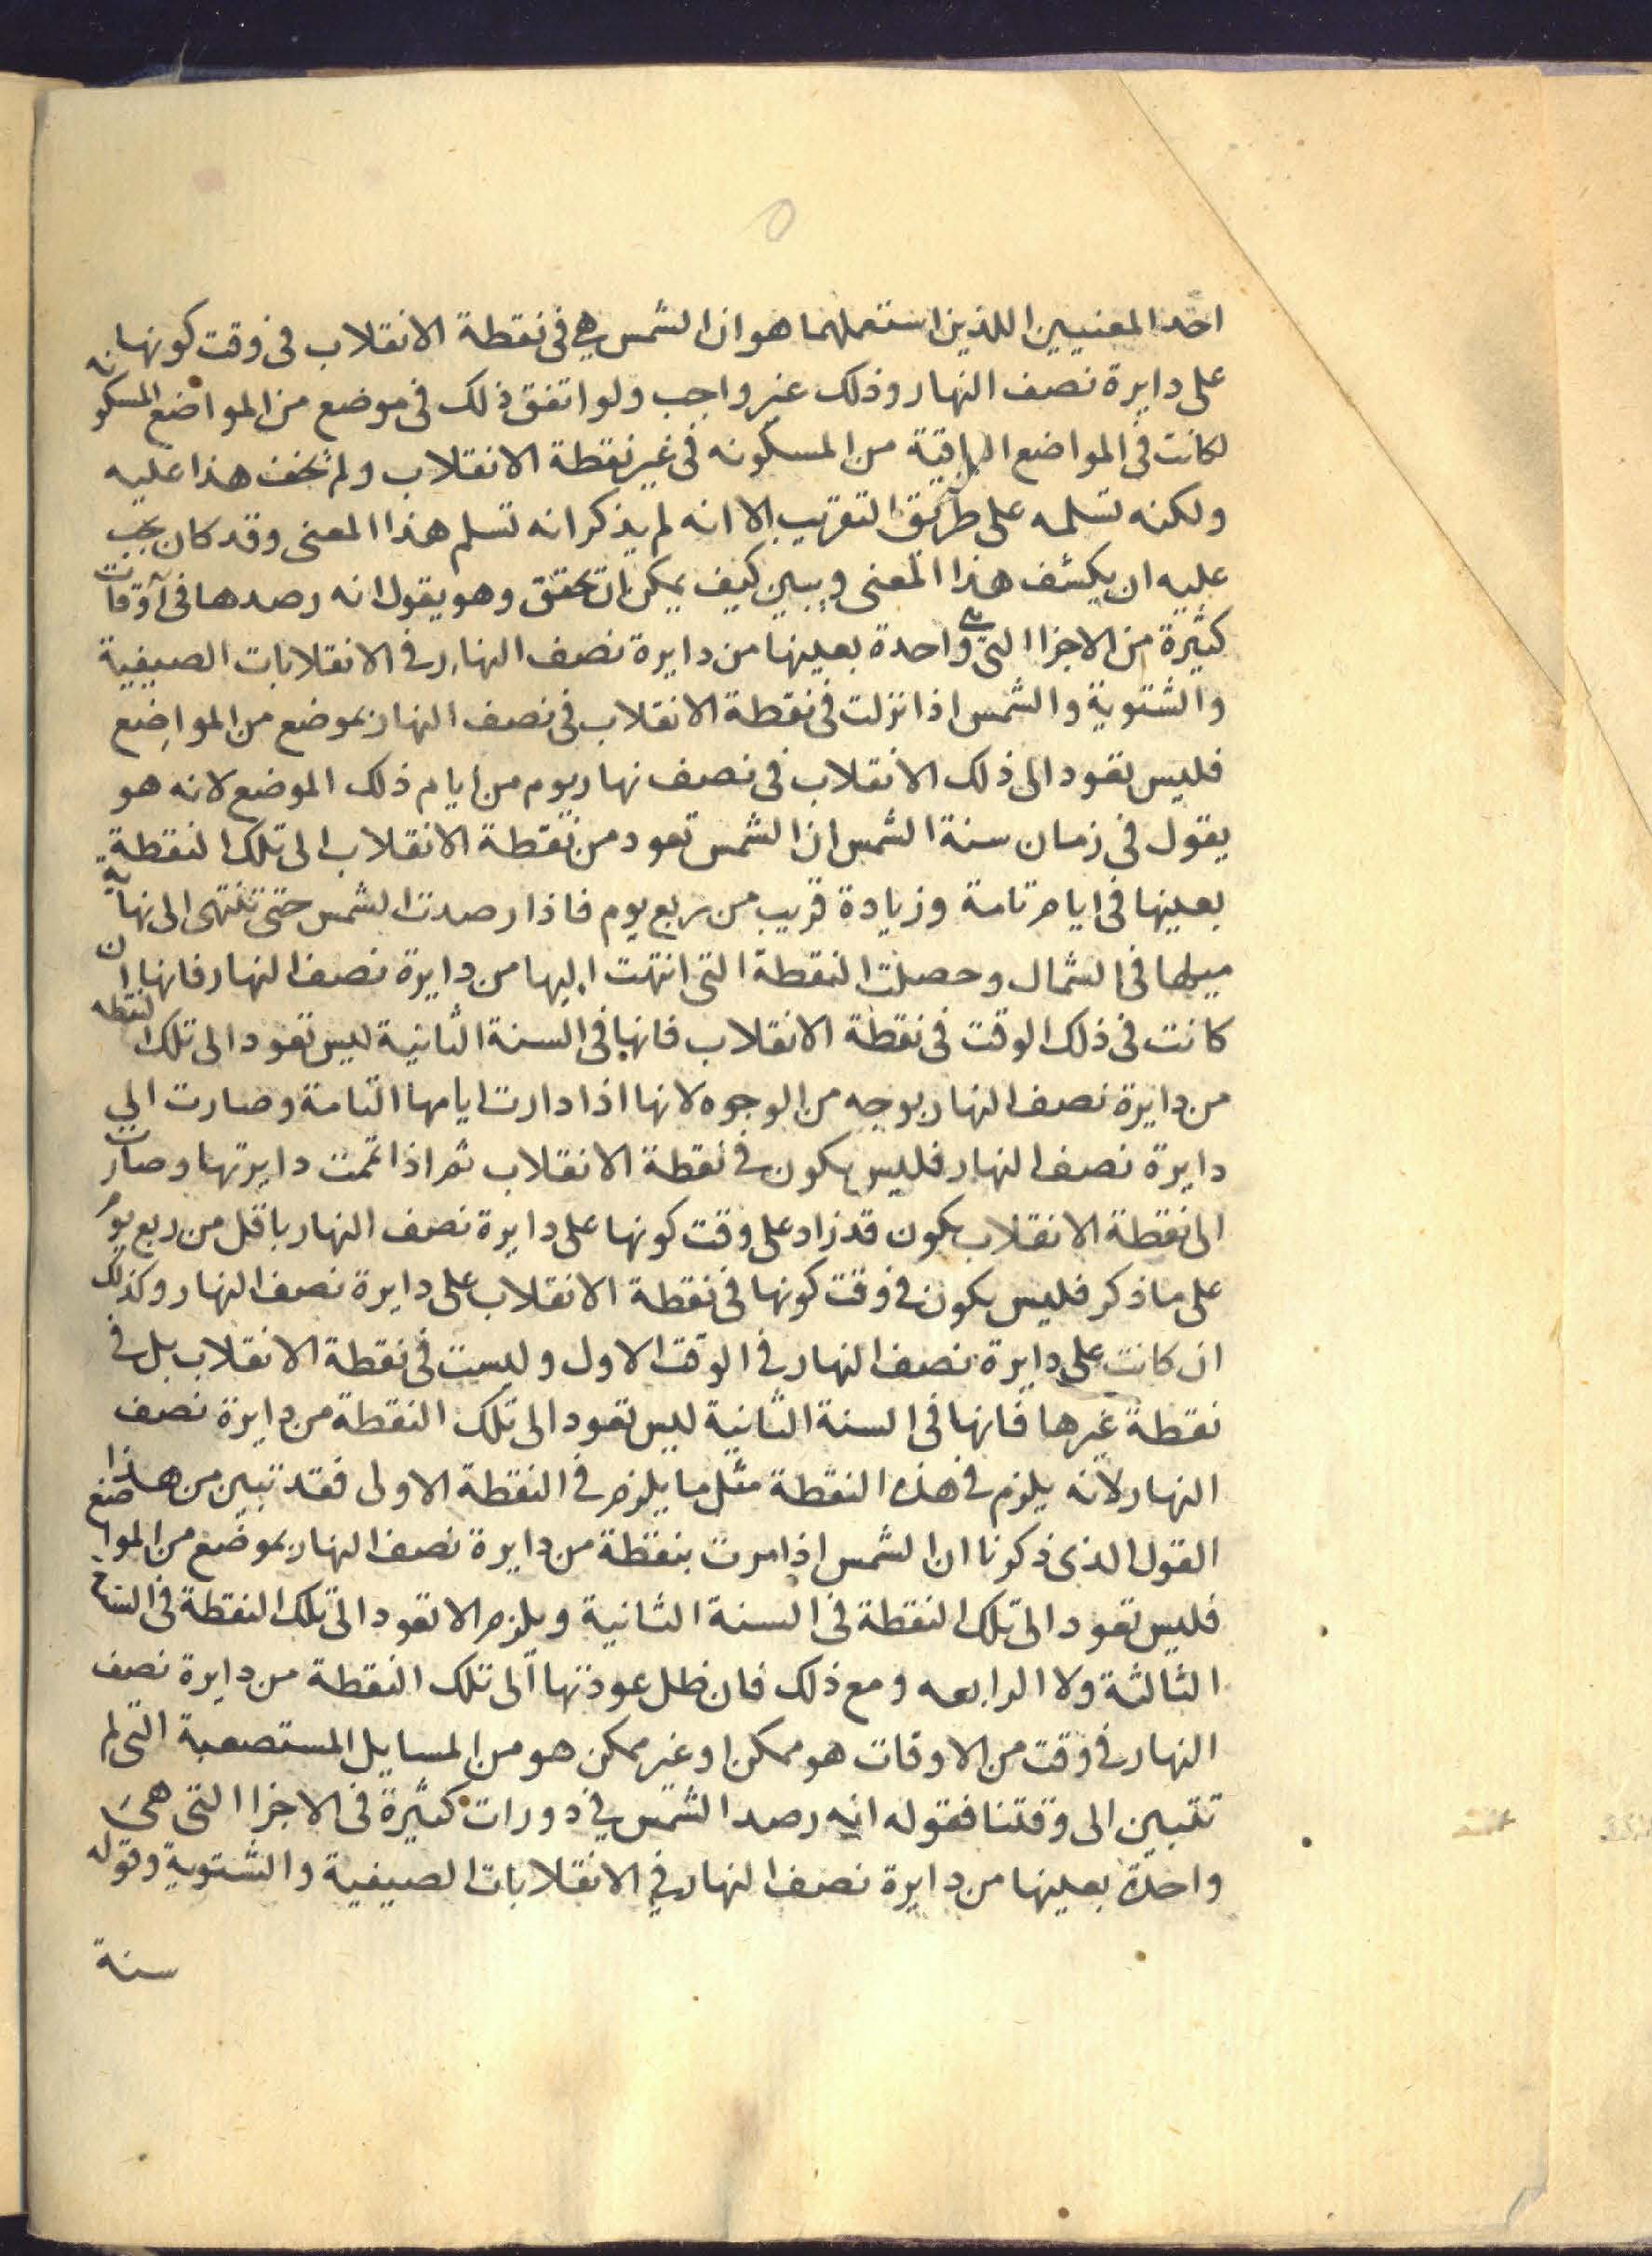 احد المعنيين اللذين استعملهما هو ان الشمس هي في نقطة الانقلاب في وقت كونها
على دايرة نصف النهار وذلك غير واجب ولو اتفق ذلك في موضع من المواضع المسكونه
لكانت في المواضع الباقية من المسكونه في غير نقطة الانقلاب ولم يخف هذا عليه
ولكنه تسلمه على طريق التقريب الا انه لم يذكر انه تسلم هذا المعنى وقد كان يجب
عليه ان يكشف هذا المعنى ويبين كيف يمكن ان تحقق وهو يقول انه رصدها في اوقات
كثيرة من الاجزا التي هي واحدة بعينها من دايرة نصف النهار في الانقلابات الصيفية
والشتوية والشمس اذا نزلت في نقطة الانقلاب في نصف النهار بموضع من المواضع
فليس تعود الى ذلك الانقلاب في نصف نهار يوم من ايام ذلك الموضع لانه هو
يقول في زمان سنة الشمس ان الشمس تعود من نقطة الانقلاب الى تلك النقطة
بعينها في ايام تامة وزيادة قريب من ربع يوم فاذا رصدت الشمس حتى تنتهى الى نهاية
ميلها في الشمال وحصلت النقطة التي انتهت اليها من دايرة نصف النهار فانها ان
كانت في ذلك الوقت في نقطة الانقلاب فانها في السنة الثانية ليس تعود الى تلك النقطه
من دايرة نصف النهار بوجه من الوجوه لانها اذا دارت ايامها التامة وصارت الى
دايرة نصف النهار فليس يكون في نقطة الانقلاب ثم اذا تممت دايرتها وصارت
الى نقطة الانقلاب يكون قد زاد على وقت كونها على دايرة نصف النهار باقل من ربع يوم
على ما ذكر فليس يكون في وقت كونها في نقطة الانقلاب على دايرة نصف النهار وكذلك
ان كانت على دايرة نصف النهار في الوقت الاول وليست في نقطة الانقلاب بل في
نقطة غيرها فانها في السنة الثانية ليس تعود الى تلك النقطة من دايرة نصف
النهار لانه يلزم في هذه النقطة مثل ما يلزم في النقطة الاولى فقد تبين من هذا
القول الذي ذكرنا ان الشمس اذا مرت بنقطة من دايرة نصف النهار بموضع من المواضع
فليس تعود الى تلك النقطة في السنة الثانية ويلزم الا تعود الى تلك النقطة في السنة
الثالثة ولا الرابعه ومع ذلك فان ظل عودتها الى تلك النقطة من دايرة نصف
النهار في وقت من الاوقات هو ممكن او غير ممكن هو من المسايل المستصعبة التي لم
تتبين الى وقتنا فقوله انه رصد الشمس في دورات كثيرة في الاجزا التي هي
واحدة بعينها من دايرة نصف النهار في الانقلابات الصيفية والشتوية وقوله
سنة